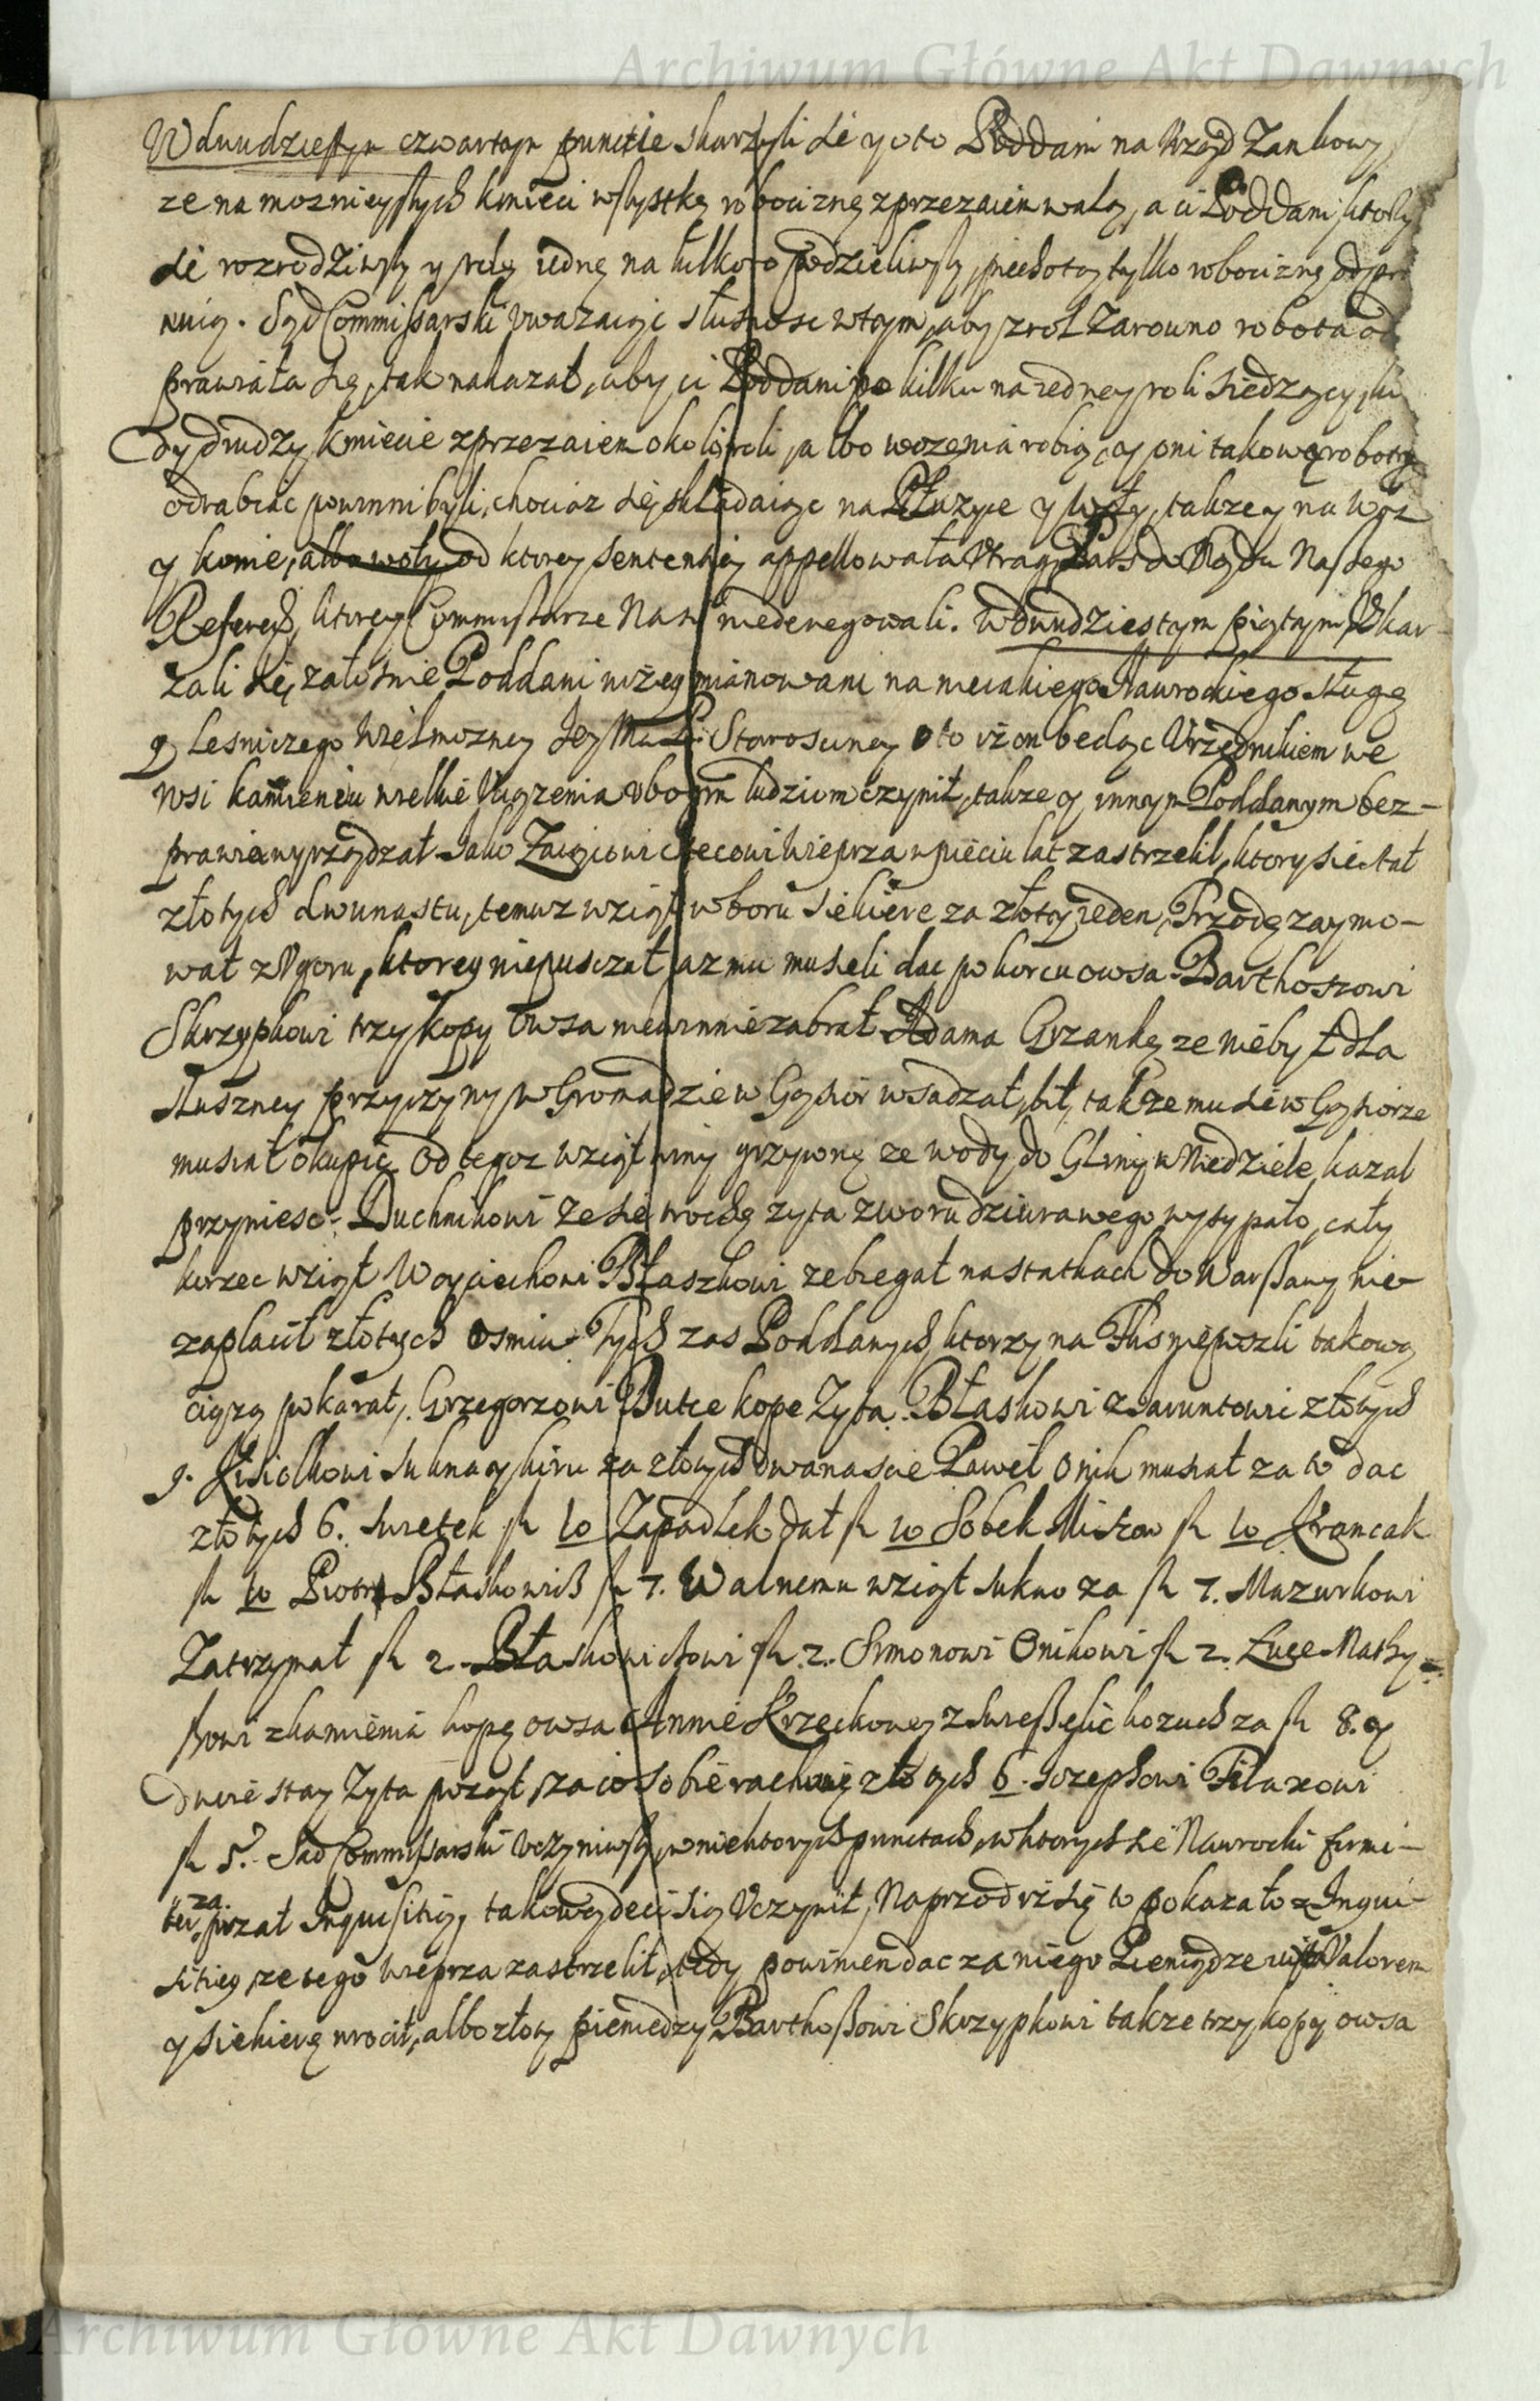 Archiwum Główne Akt Dawnych
W dwudziestym czwartym punctie skarzyli sie y o to Poddani na Urząd Zamkowy
ze na moznieyszych kmieci wszystkę robociznę zprzezaiem walą, a ci Poddani ktorzy
sie rozrodziwszy y rolę iednę na kilkoro podzieliwszy, piechotą tylko robociznę odpra
wuią. Sąd Commissarski uwazaiąc słusnosc w tym, aby z rol zarowno robota od
prawiała się, tak nakazał, aby ci Poddani po kilku na iedney roli siedzący, kie
dy drudzy kmiecie zprzezaiem około roli, albo wozenia robią, y oni takowę robotę
odrabiac powinni byli, chociaz się składaiąc na Płuzyce y woły, takze y na woz
y konie, albo woły od ktorey sententiey appellowała Utraq Pars do Sądu Naszego
Referend, ktorey Commissarze Nasi niedenegowali. W dwudziestym piątym Uskar-
zali się załosnie Poddani nizey mianowani na nieiakiego Nawrockiego sługę
y Lesniczego Wielmozney Jey Mci P. Starosciney o to iż on bedąc Urzędnikiem we
wsi kamieniu wielkie Uciązenia ubogim ludziom czynił, takze y innym Poddanym bez-
prawia wyrządzał. Jako Zaiącowi Checowi Wieprza w pięciu lat zastrzelił, ktory sie stał
złotych dwunastu, temuz wziął w boru siekierę za złoty ieden, Trzodę zaymo-
wał z Ugoru, ktorey niepusczał az mu museli dac po korcu owsa. Barthoszowi
Skrzypkowi trzy kopy owsa niewinnie zabrał. Adama Grzankę ze nie był dla
słuszney przyczyny w Gromadzie w Gąsior wsadzał, bił, takze mu sie w Gąsiorze
musiał okupic. Od tegoz wziął winy grzywnę ze wody do Gliny w Niedziele kazał
przyniesc. Duchnikowi ze sie trochę zyta z woru dziurawego wysypało, cały
korzec wziął. Woyciechowi Błaszkowi ze biegał na statkach do Warszawy nie-
zapłacił złotych osmiu. Tych zas Poddanych, ktorzy na Thosnię poszli takową
ciązą pokarał, Grzegorzowi Dutce kope Zyta. Błaskowi złotych
9. Kisiolkowi sukna y kiru za złotych dwanascie Paweł Onik musiał za to dac
złotych 6. Swietek fl 10 Zapadlek dał fl 10 Sobek Miszow fl 10 Krancak
fl 10 Piotr Błaskowicz fl 7. Walnemu wziął sukno za fl 7. Mazurkowi
Zatrzymał fl 2. Błaskowiczowi fl. 2. Simonowi Onikowi fl 2. Luce Mathy-
szowi z kamienia kopę owsa Annie Krzeckowey z kozuch za fl 8. y
Dwie stay Zyta pozął, za co sobie rachuię złotych 6. Iozephowi Pilaxowi
fl 5. Sąd Commissarski Uczyniwszy, w niektorych punctach, w ktorych sie Nawrocki firmi-
ter zaprzał Inquisitią, takową decisią Uczynił, Naprzod iż się to pokazało z Inqui-
sitiey, ze tego wieprza zastrzelił, tedy powinien dac za niego Pieniądze iuxta Valorem
y siekierę wrocił, albo złoty pieniedzy Barthoszowi Skrzypkowi takze trzy kopy owsa
Archiwum Główne Akt Dawnych